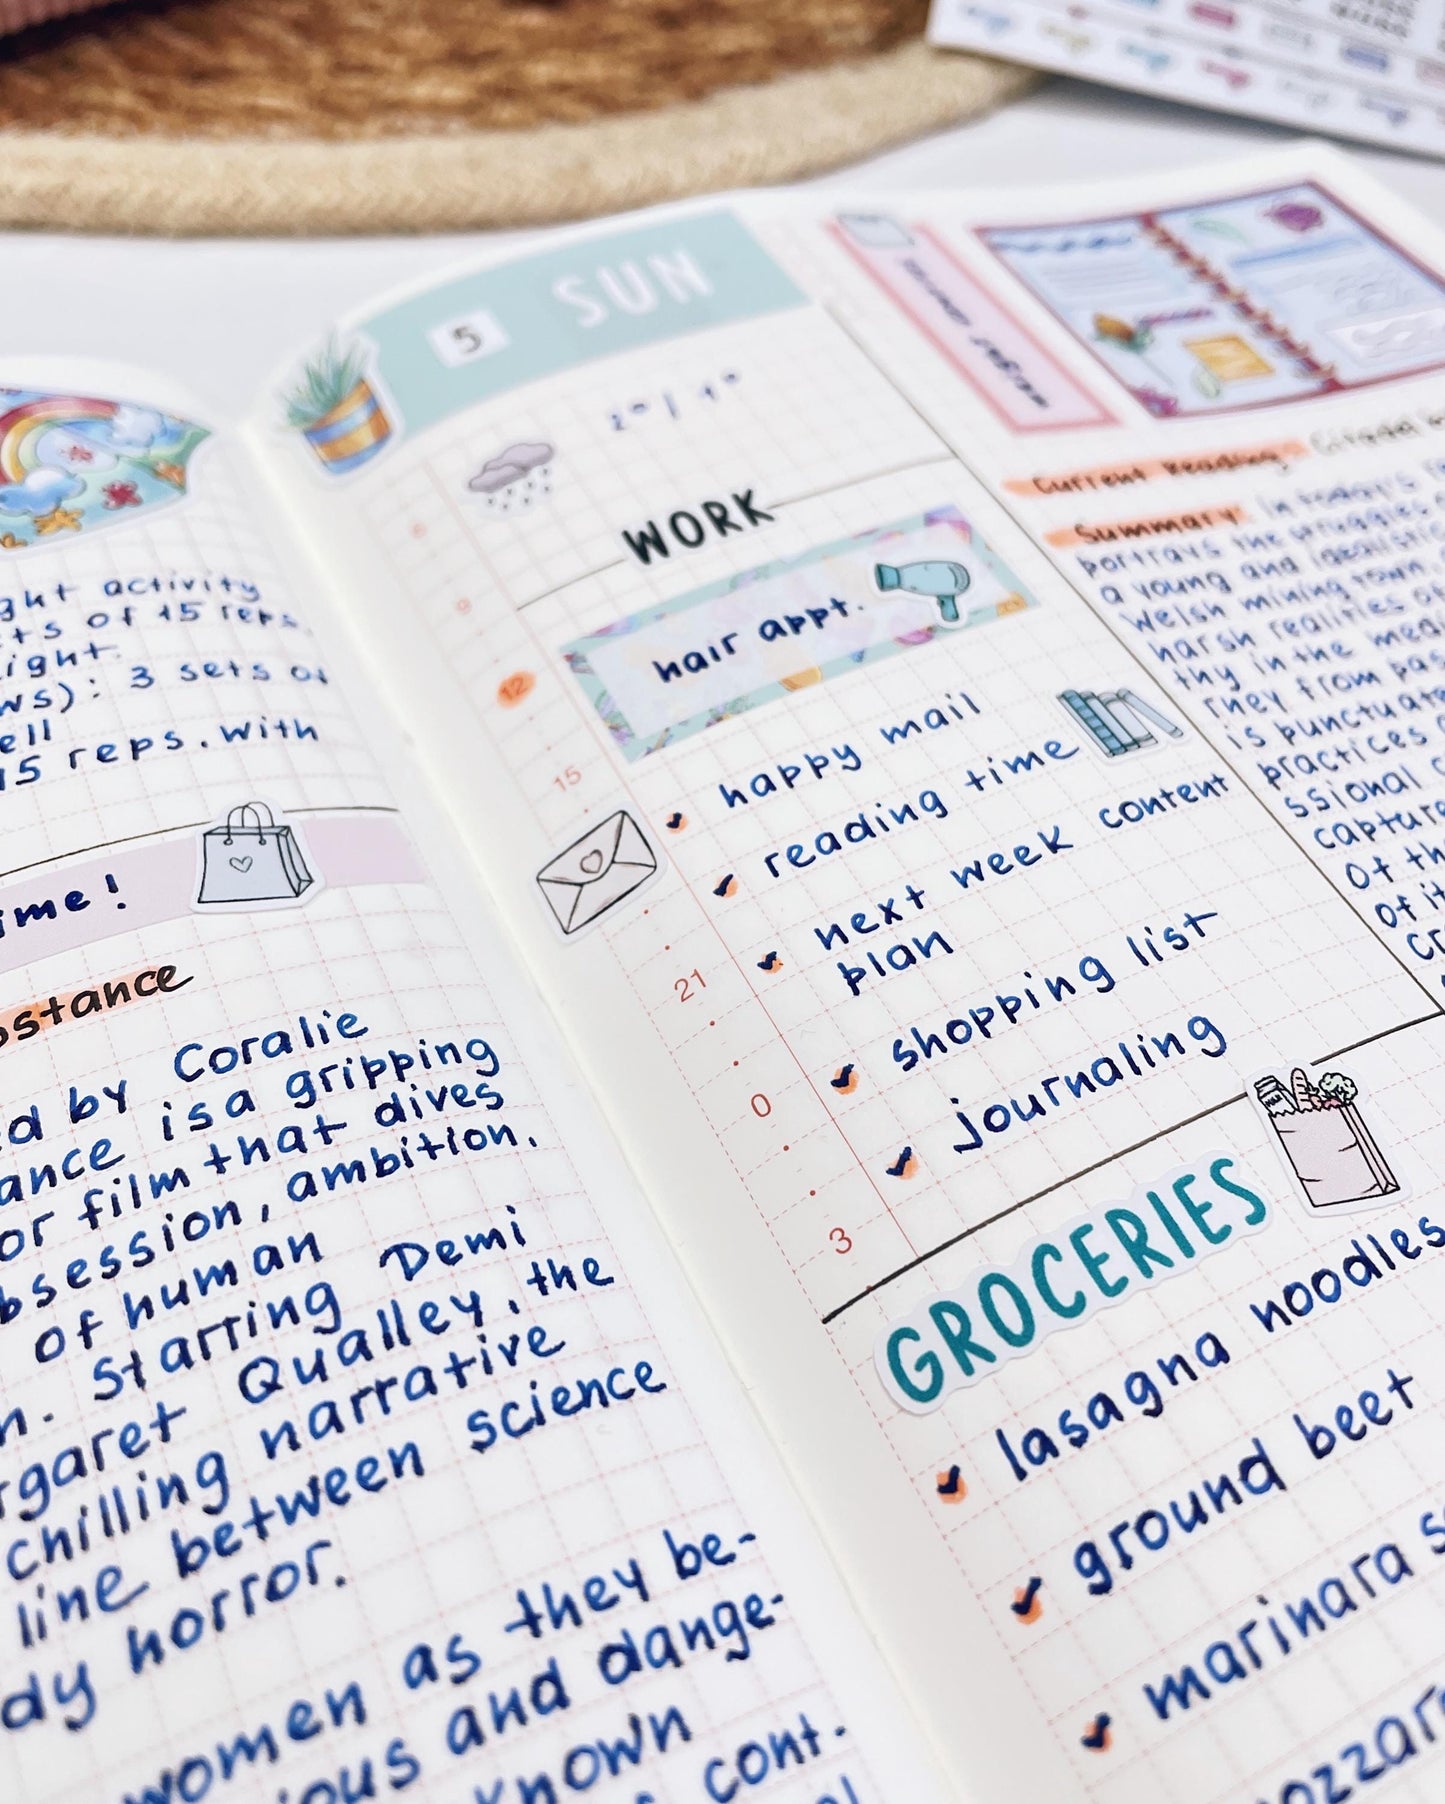 ght activity
ts of 15 reps.
ight.
ws): 3 sets of
ell
15 reps. with
ime!
bstance
ed by Coralie
ance is a gripping
or film that dives
bsession, ambition,
of human
n. Starring Demi
rgaret Qualley, the
chilling narrative
line between science
dy horror.
women as they be-
ious and dange-
known
cont.
5 SUN
WORK
hair appt.
12
15
21
0
3
happy mail
reading time
next week content
plan
shopping list
journaling
GROCERIES
lasagna noodles
ground beet
marinara s
ozzar
Current Reading: Citadel
Summary: In today's
portrays the struggles
a young and idealistic
Welsh mining town.
harsh realities
thy in the med
rney from pas
is punctuate
practices
ssional
capture
of th
of it
cr